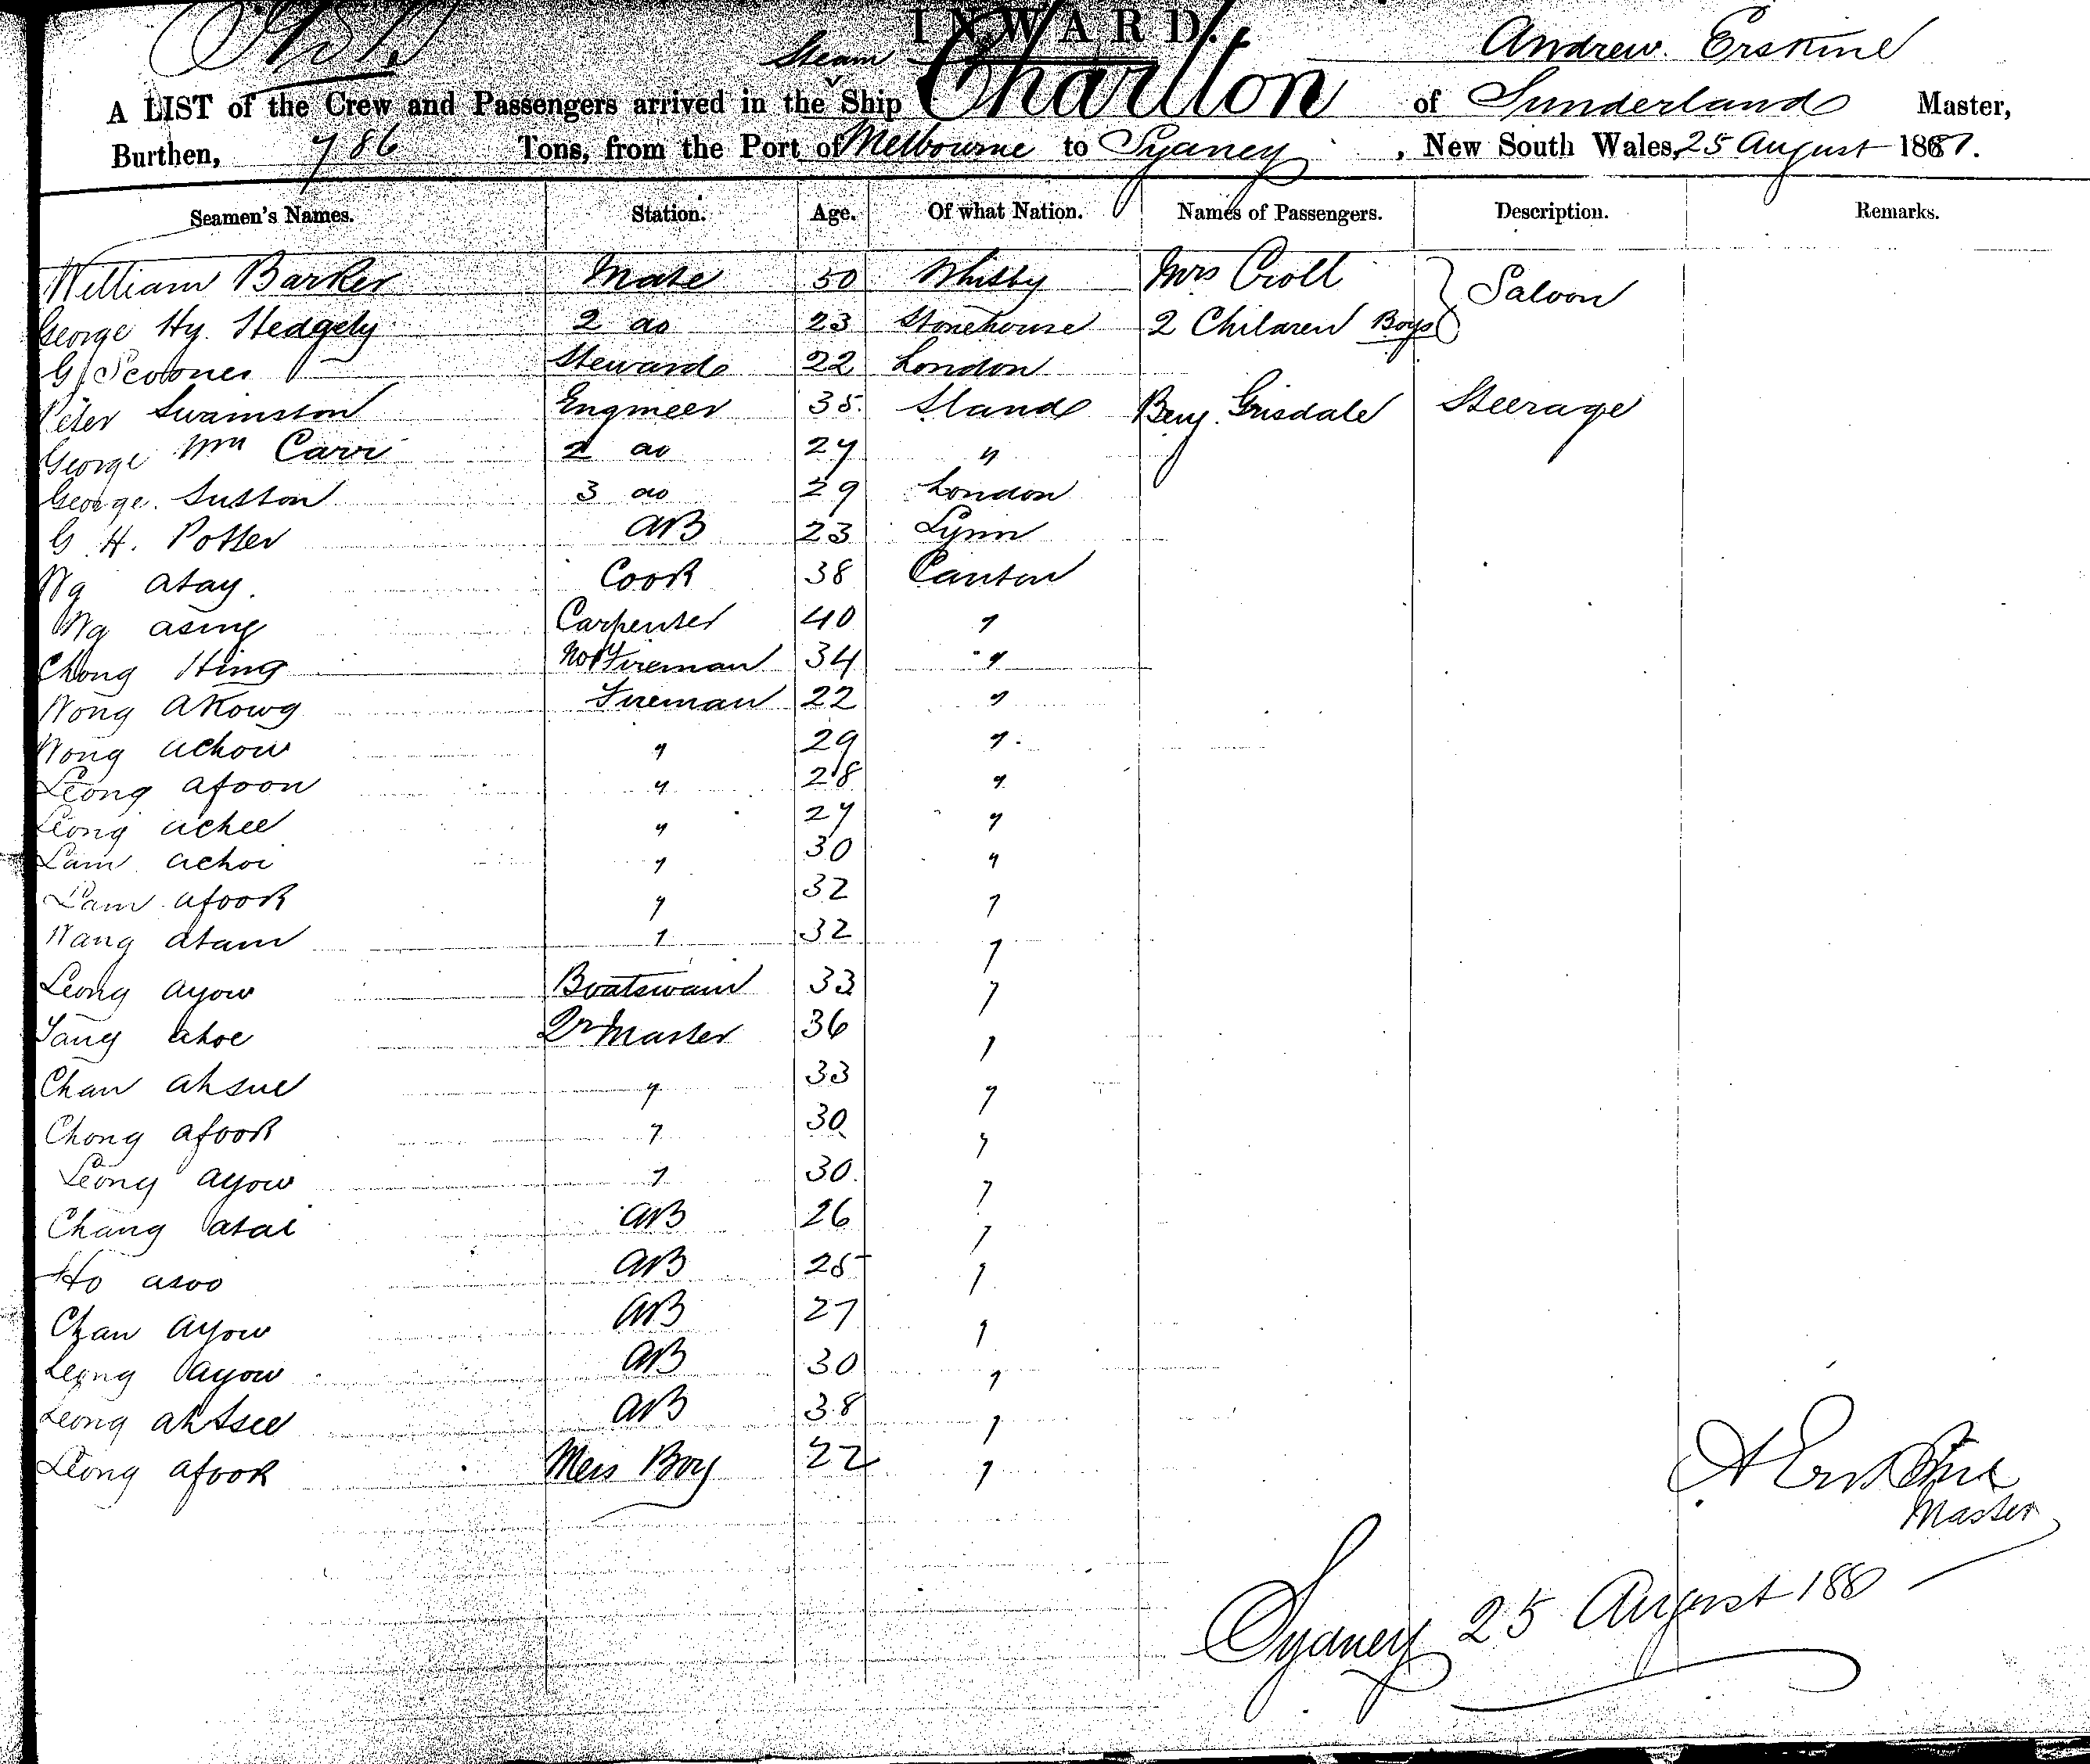 INWARD.
Steam Andrew Erskine
A LIST of the Crew and Passengers arrived in the Ship Charlton of Sunderland Master,
Burthen, 786 Tons, from the Port of Melbourne to Sydney, New South Wales, 25 August 1881.
Seamen's Names. Station. Age. Of what Nation. Names of Passengers. Description. Remarks.
William Barker Mate 50 Whitby Mrs Croll Saloon
George Hy. Hedgely 2 do 23 Stonehouse 2 Children Boys
G Scooner Steward 22 London
Peter Swainston Engineer 35 Sland Benj. Grisdale Steerage
George Wm Carr 2 do 27 "
George Sutton 3 do 29 London
G. H. Potter AB 23 Lynn
Ng atay. Cook 38 Canton
Ng asing Carpenter 40 "
Chong Hing No1 Fireman 34 "
Wong akowg Fireman 22 "
Wong achow " 29 "
Leong afoon " 28 "
Leong achee " 27 "
Lam achoi " 30 "
Lam afook " 32 "
Wang atam " 32 "
Leong ayow Boatswain 33 "
Yang ahoe Qr Master 36 "
Chan ahsue " 33 "
Chong afook " 30 "
Leong ayow " 30 "
Chang atai AB 26 "
Ho asoo AB 25 "
Chan ayow AB 27 "
Leong ayow AB 30 "
Leong ahtsee AB 38 "
Leong afook Mess Boy 22 "
A Erskine
Master
Sydney 25 August 188